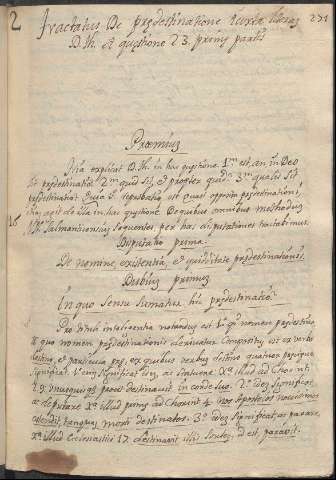 2 Tractatus De prędestinatione Iuxta literas 271
D. Th. et quęstione 23. primę partis
Proemium
Tria explicat D. Th. in hac quęstione. 1.m est, an in Deo
sit prędestinatio. 2.m quid sit, et propter quid. 3.m qualis sit
prędestinatio. Quia v. reprobatio, est quasi opposita prędestinationi,
ideo agit de illa in hac quęstione. De quibus omnibus methodum
PP. Salmanticensium sequentes, per has disputationes tractabimus.
Disputatio prima.
De nomine, existentia, et quidditate prędestinationis.
Dubium primum
In quo sensu sumatur hic prędestinatio.
Pro tituli intelligentia notandum est 1.o quod nomen prędestino,
a quo nomen prędestinationis derivatur compositum est ex verbo
destino, et particula prę, ex quibus verbum destino quatuor
significat. 1.o enim significat idem, ac statuere. Xa. illud ad
unusquisque prout destinavit in corde suo. 2.o idem significat,
ac deputare Xa. illud primę ad Chorint. 4. nos Apostolos novissimos
ostendit, tanquam morti destinatos. 3.o idem significat, ac parare,
Xa. illud Ecclesiastici 17. destinavit illis sortem, id est, paravit.